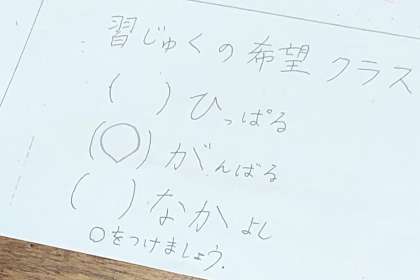 習じゅくの希望クラス
( )ひっぱる
(○)がんばる
( )なかよし
○をつけましょう.